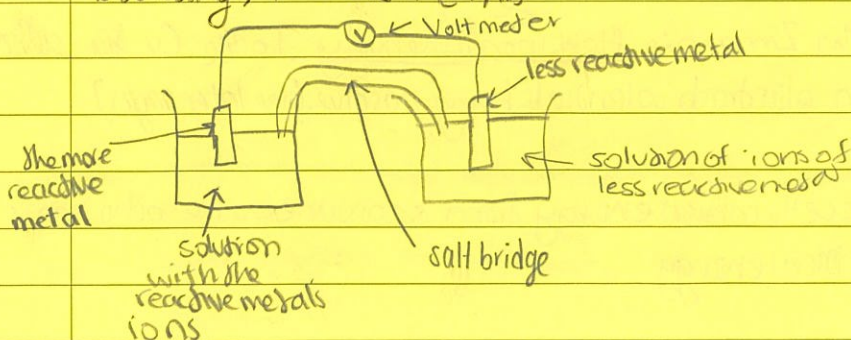 V
Voltmeter
less reactive metal
the more
reactive
metal
solution of ions of
less reactive metal
solution
with the
reactive metal's
ions
salt bridge